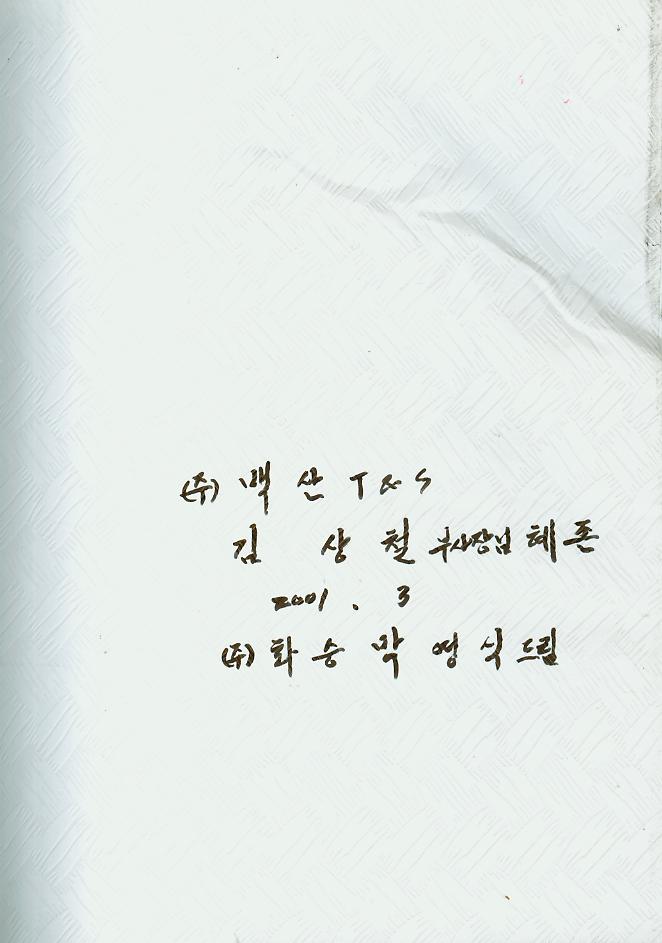 (주) 백 산 T & S
김 상 철 부사장님 혜존
2001 . 3
(주) 화 승 박 영 식 드림